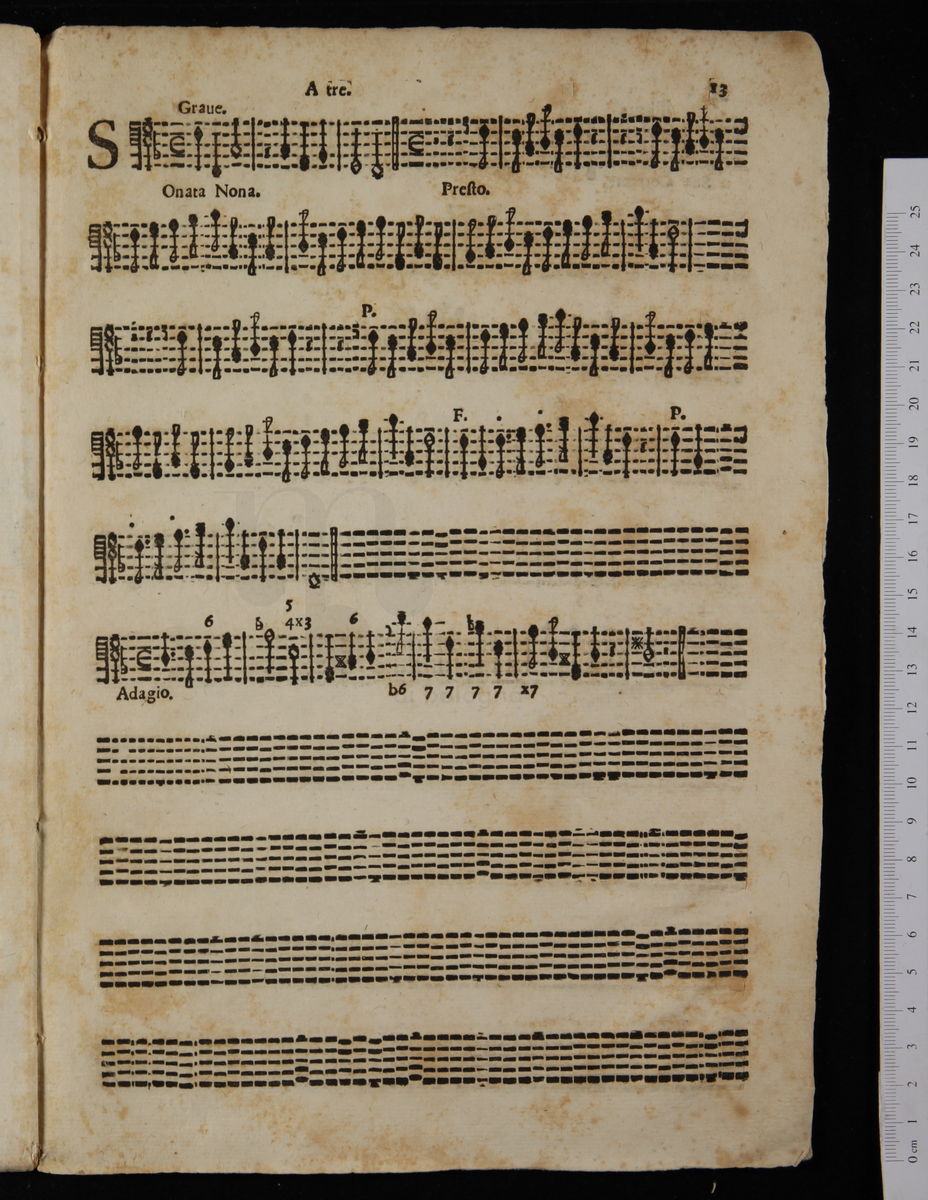 A tre. 13
Graue.
SOnata Nona. Presto.
P.
F. P.
5
6 b 4x3 6 b
Adagio. b6 7 7 7 7 x7
0 cm 1 2 3 4 5 6 7 8 9 10 11 12 13 14 15 16 17 18 19 20 21 22 23 24 25